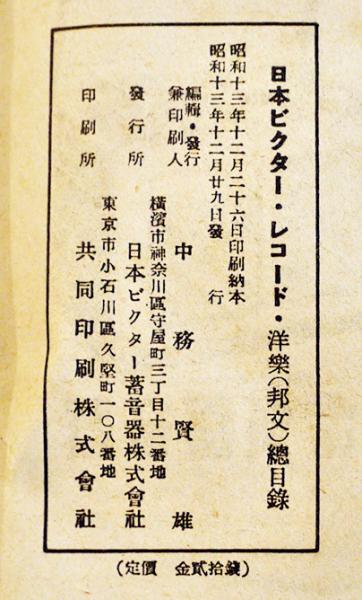 日本ビクター・レコード・洋樂(邦文)總目錄
昭和十三年十二月二十六日印刷納本
昭和十三年十二月廿九日發行
編輯・發行
兼印刷人
中務賢雄
橫濱市神奈川區守屋町三丁目十二番地
發行所
日本ビクター蓄音器株式會社
東京市小石川區久堅町一〇八番地
印刷所
共同印刷株式會社
(定價 金貳拾錢)